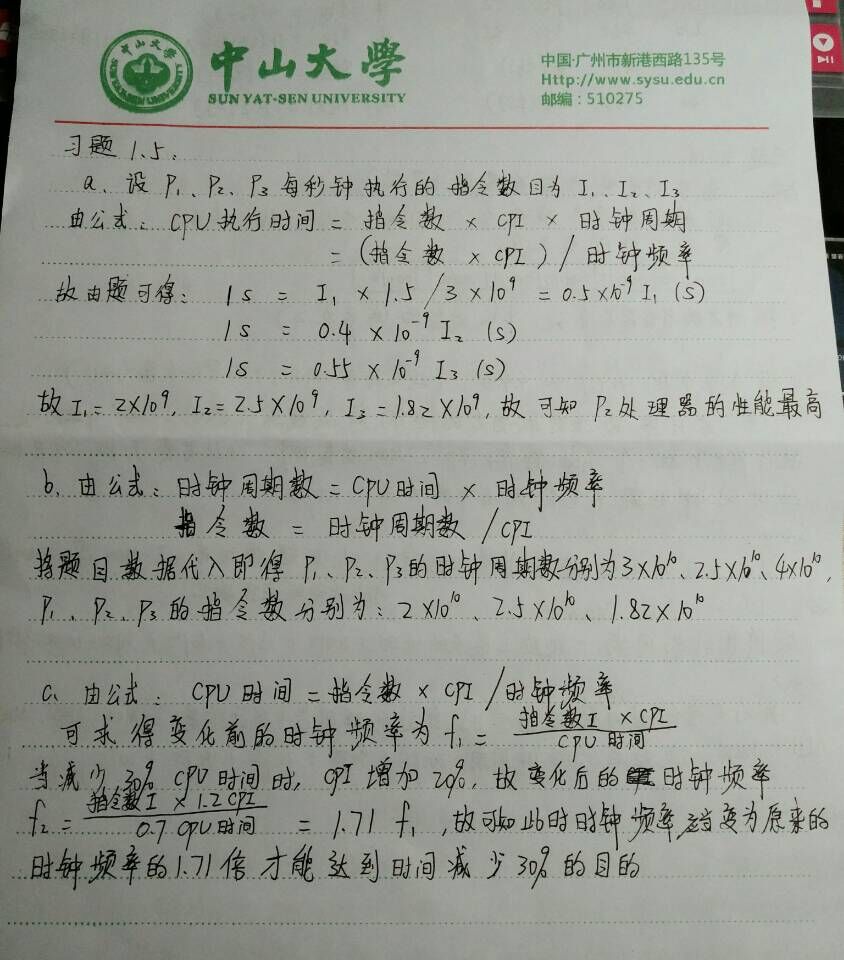 中山大學
SUN YAT-SEN UNIVERSITY
中国·广州市新港西路135号
Http://www.sysu.edu.cn
邮编：510275
习题 1.5：
a、设 P₁、P₂、P₃ 每秒钟执行的指令数目为 I₁、I₂、I₃
由公式：CPU执行时间 = 指令数 × CPI × 时钟周期
= (指令数 × CPI) / 时钟频率
故由题可得：1s = I₁ × 1.5 / 3 × 10⁹ = 0.5×10⁻⁹ I₁ (s)
1s = 0.4 × 10⁻⁹ I₂ (s)
1s = 0.55 × 10⁻⁹ I₃ (s)
故 I₁ = 2×10⁹, I₂ = 2.5×10⁹, I₃ = 1.82×10⁹, 故可知 P₂ 处理器的性能最高
b、由公式：时钟周期数 = CPU时间 × 时钟频率
指令数 = 时钟周期数 / CPI
将题目数据代入即得 P₁、P₂、P₃的时钟周期数分别为3×10¹⁰、2.5×10¹⁰、4×10¹⁰,
P₁、P₂、P₃的指令数分别为：2×10¹⁰、2.5×10¹⁰、1.82×10¹⁰
c、由公式：CPU时间 = 指令数 × CPI / 时钟频率
可求得变化前的时钟频率为 f₁ = 指令数I × CPI / CPU时间
当减少30% CPU时间时, CPI增加20%, 故变化后的时钟频率
f₂ = 指令数I × 1.2CPI / 0.7CPU时间 = 1.71 f₁, 故可知此时时钟频率变为原来的
时钟频率的1.71倍才能达到时间减少30%的目的